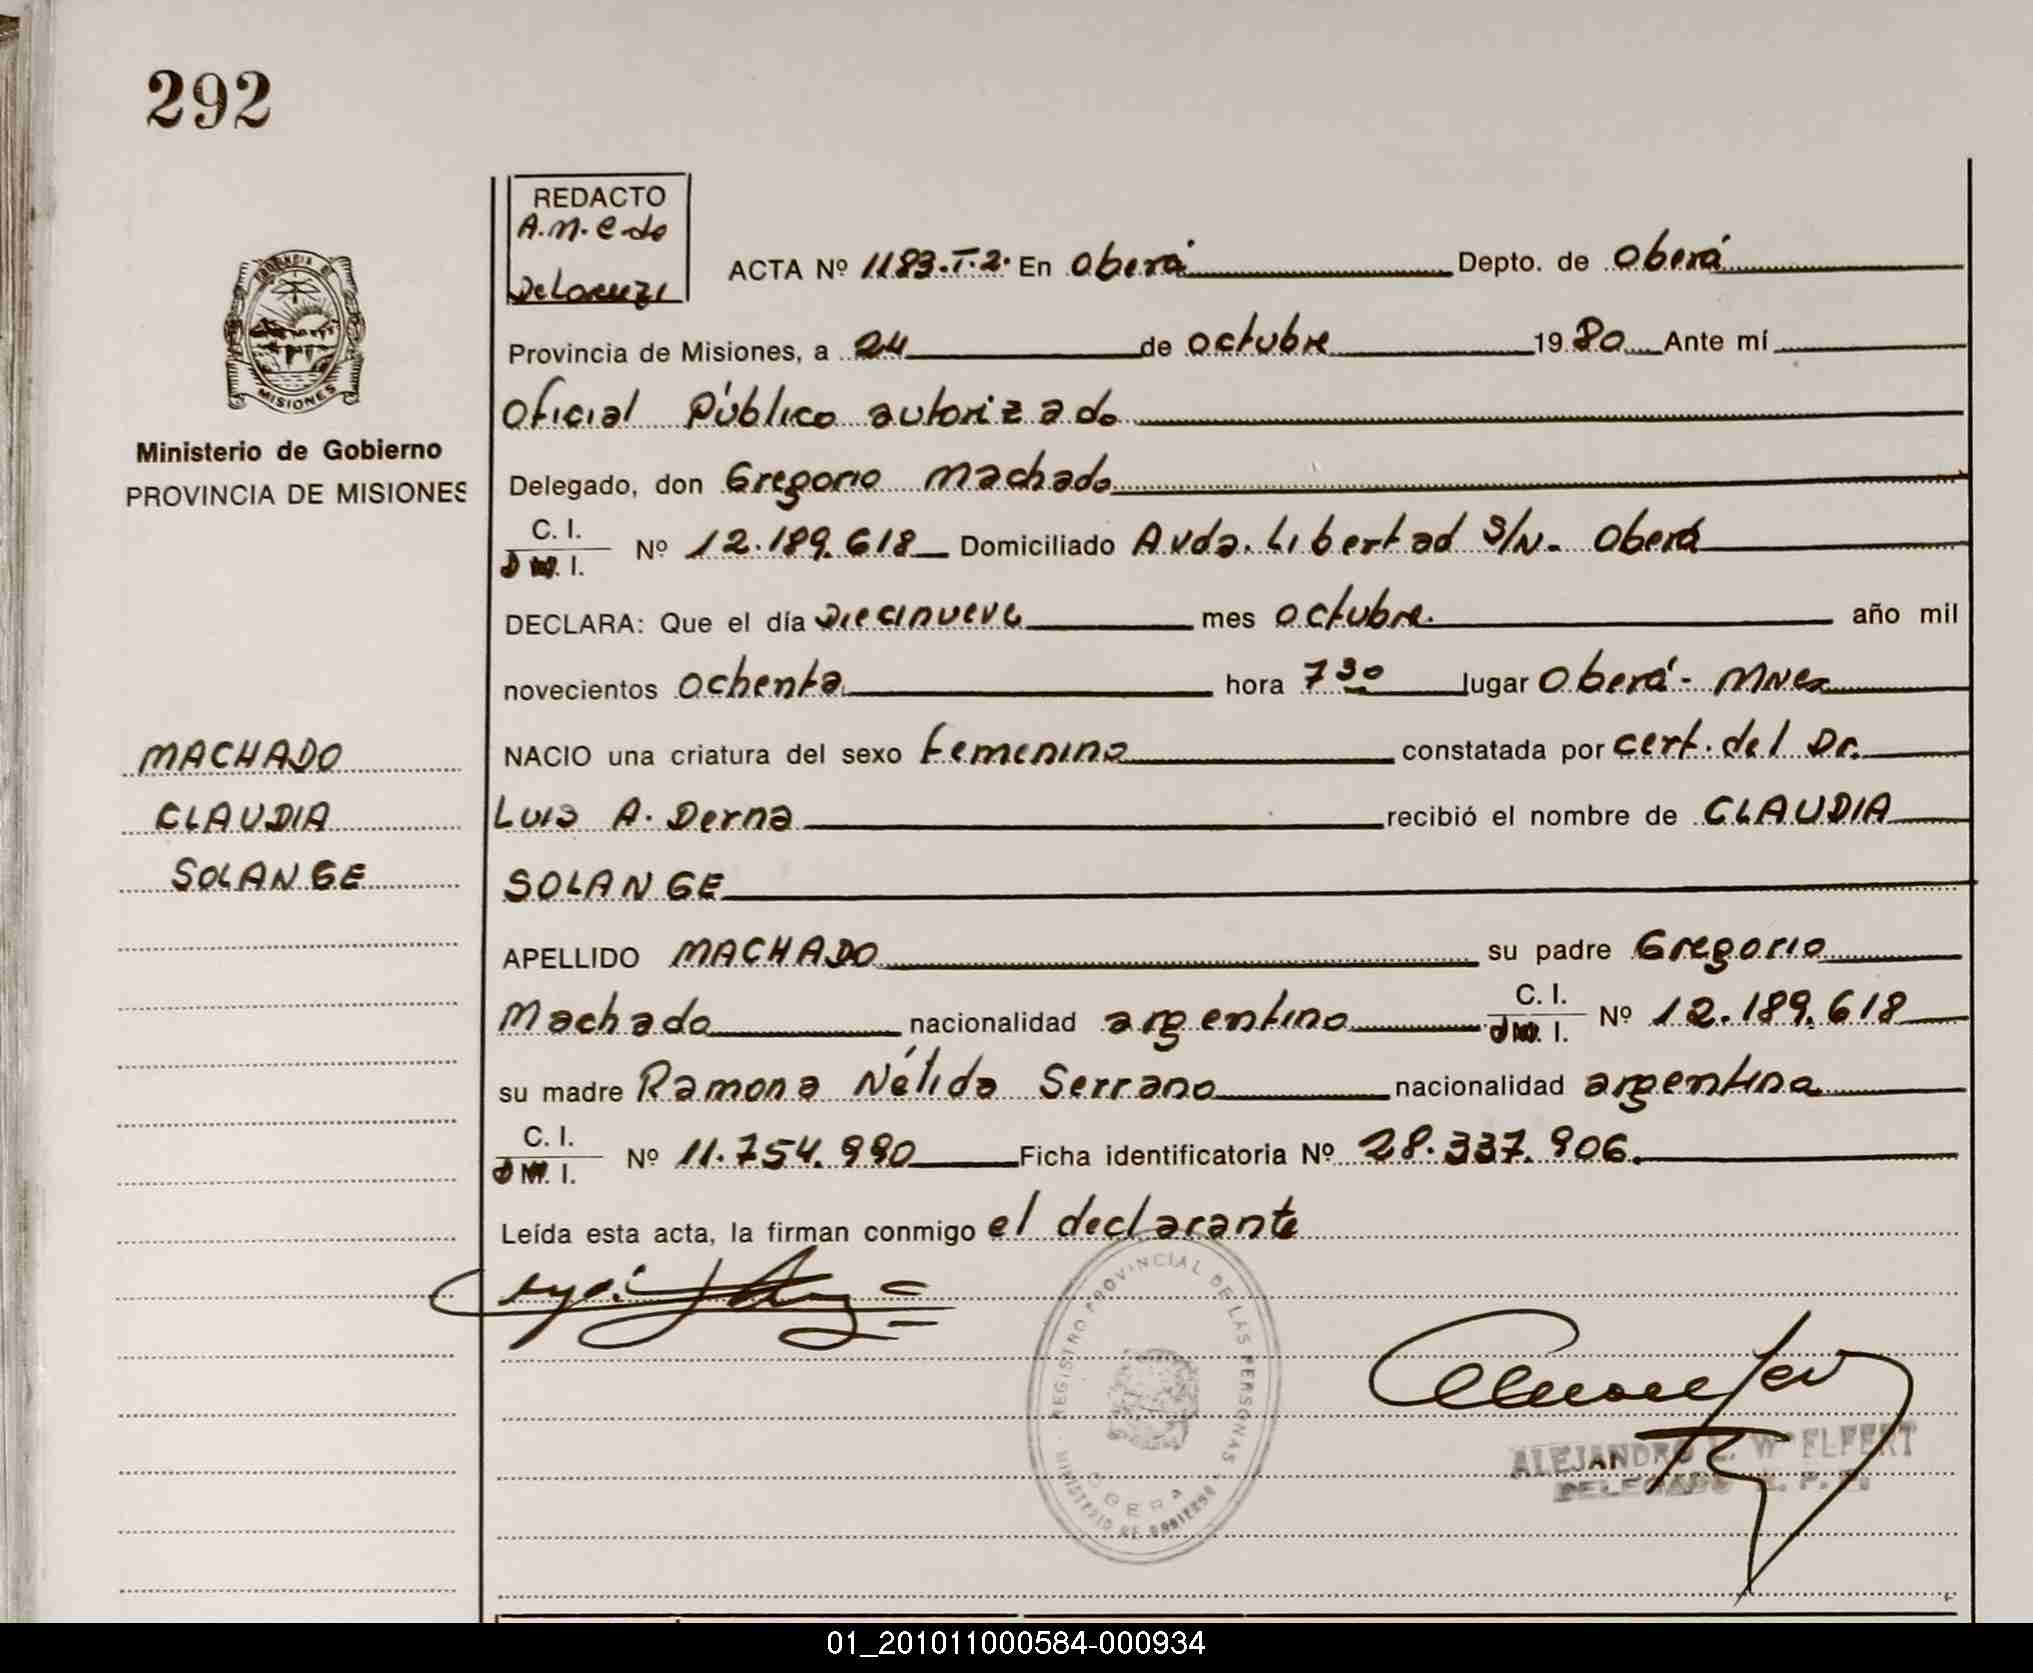 292
REDACTO
A.M.C. de
De Lorenzi
ACTA Nº 1183.T.2. En Oberá Depto. de Oberá
Provincia de Misiones, a 24 de octubre 1980 Ante mí
Oficial Público autorizado
Ministerio de Gobierno
PROVINCIA DE MISIONES
Delegado, don Gregorio Machado
C. I.
D.N.I. Nº 12.189.618 Domiciliado Avda. Libertad S/N- Oberá
DECLARA: Que el día Diecinueve mes octubre año mil
novecientos ochenta hora 7 30 lugar Oberá- Mnes
MACHADO
CLAUDIA
SOLANGE
NACIO una criatura del sexo femenino constatada por cert. del Dr.
Luis A. Derna recibió el nombre de CLAUDIA
SOLANGE
APELLIDO MACHADO su padre Gregorio
Machado nacionalidad argentino C. I. D.N.I. Nº 12.189.618
su madre Ramona Nélida Serrano nacionalidad argentina
C. I.
D.N.I. Nº 11.754.990 Ficha identificatoria Nº 28.337.906.
Leída esta acta, la firman conmigo el declarante
REGISTRO PROVINCIAL DE LAS PERSONAS
MINISTERIO DE GOBIERNO
OBERA
ALEJANDRO
DELEGADO
01_201011000584-000934